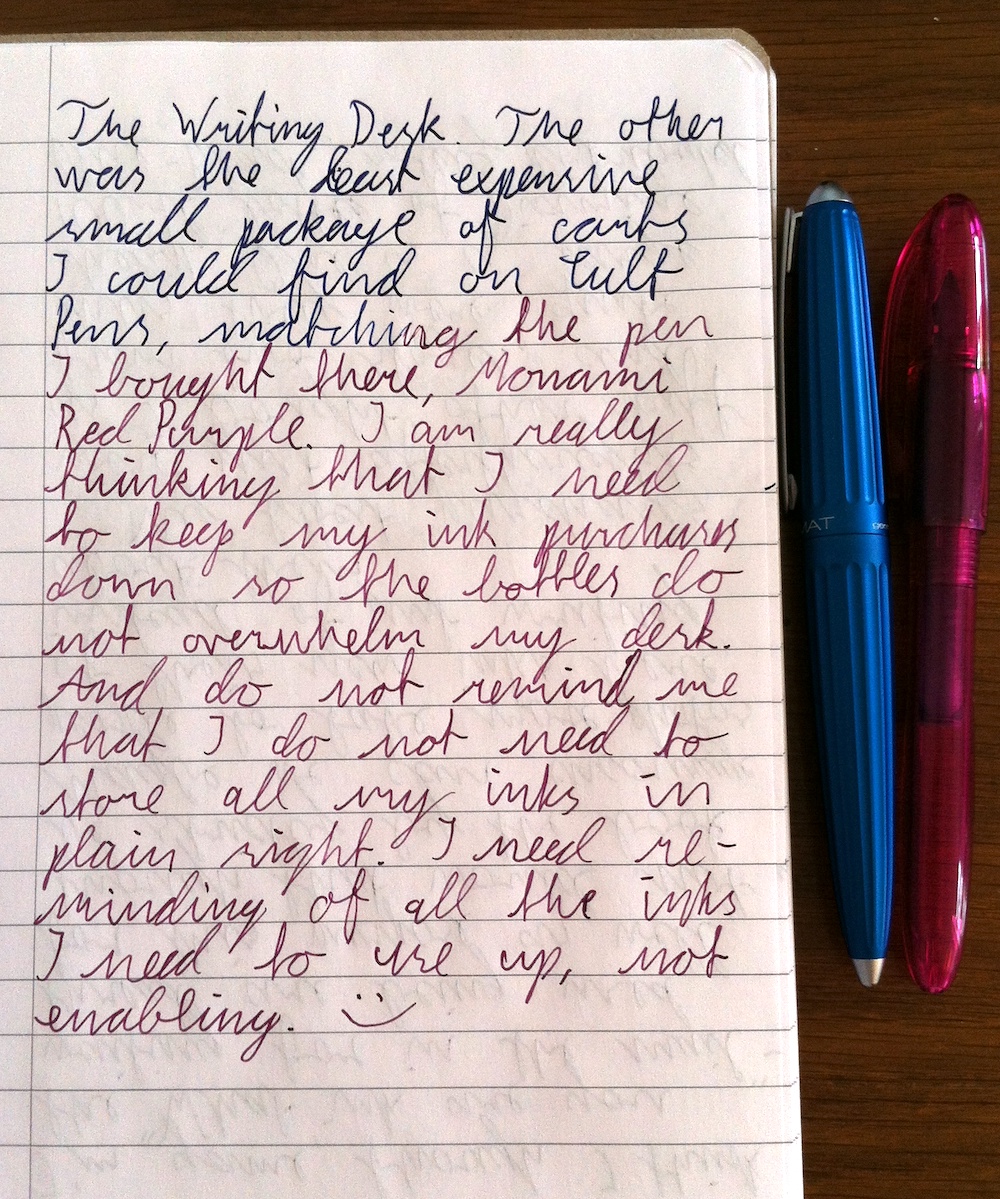 The Writing Desk. The other
was the least expensive
small package of carts
I could find on Cult
Pens, matching the pen
I bought there, Monami
Red Purple. I am really
thinking that I need
to keep my ink purchases
down so the bottles do
not overwhelm my desk.
And do not remind me
that I do not need to
store all my inks in
plain sight. I need re-
minding of all the inks
I need to use up, not
enabling. :)